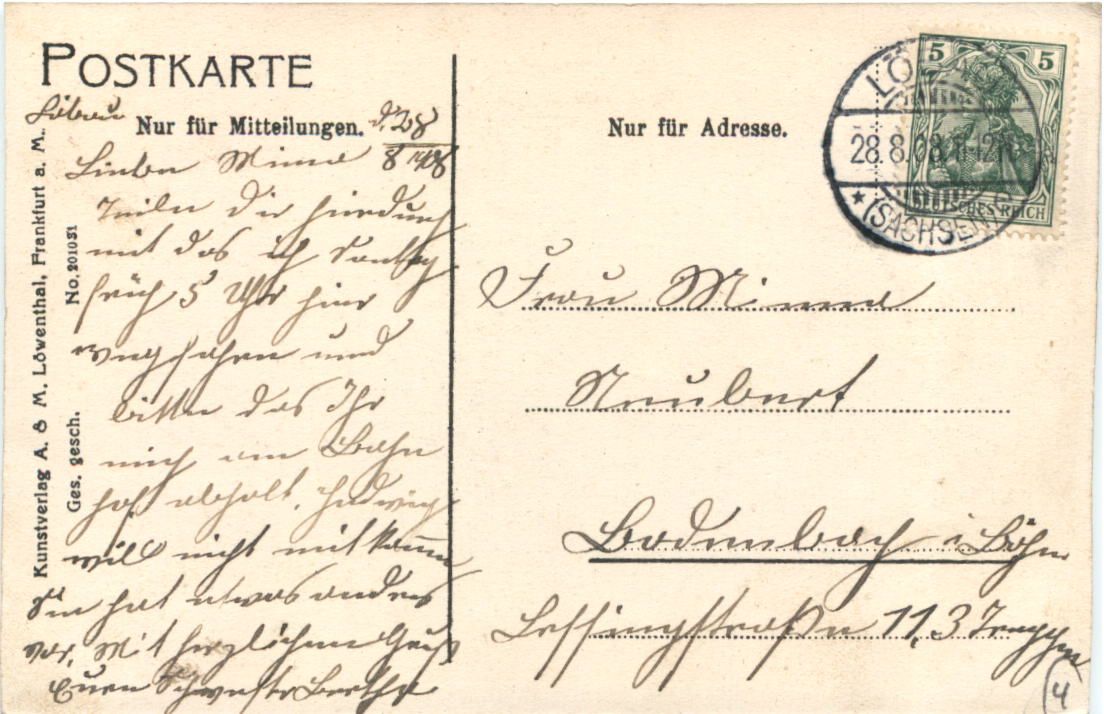 POSTKARTE
Nur für Mitteilungen.
Löbau d. 28
8 1908
Liebe Minna
Teile dir hierdurch
mit das ich Sontag
früh 5 Uhr hier
wegfahre und
bitte das Ihr
mich am Bahn
hof abholt. Hedwig
will nicht mitkommen
Sie hat etwas anderes
vor. Mit herzlichem Gruß
Eure Schwester Bertha
Kunstverlag A. & M. Löwenthal, Frankfurt a. M.
Ges. gesch. No. 201031
Nur für Adresse.
5 5
DEUTSCHES REICH
LÖBAU
28.8.08.11-12
* (SACHSEN) c
Frau Minna
Neubert
Bodenbach i Böhm
Lessingstraße 11, 3 Treppen
4